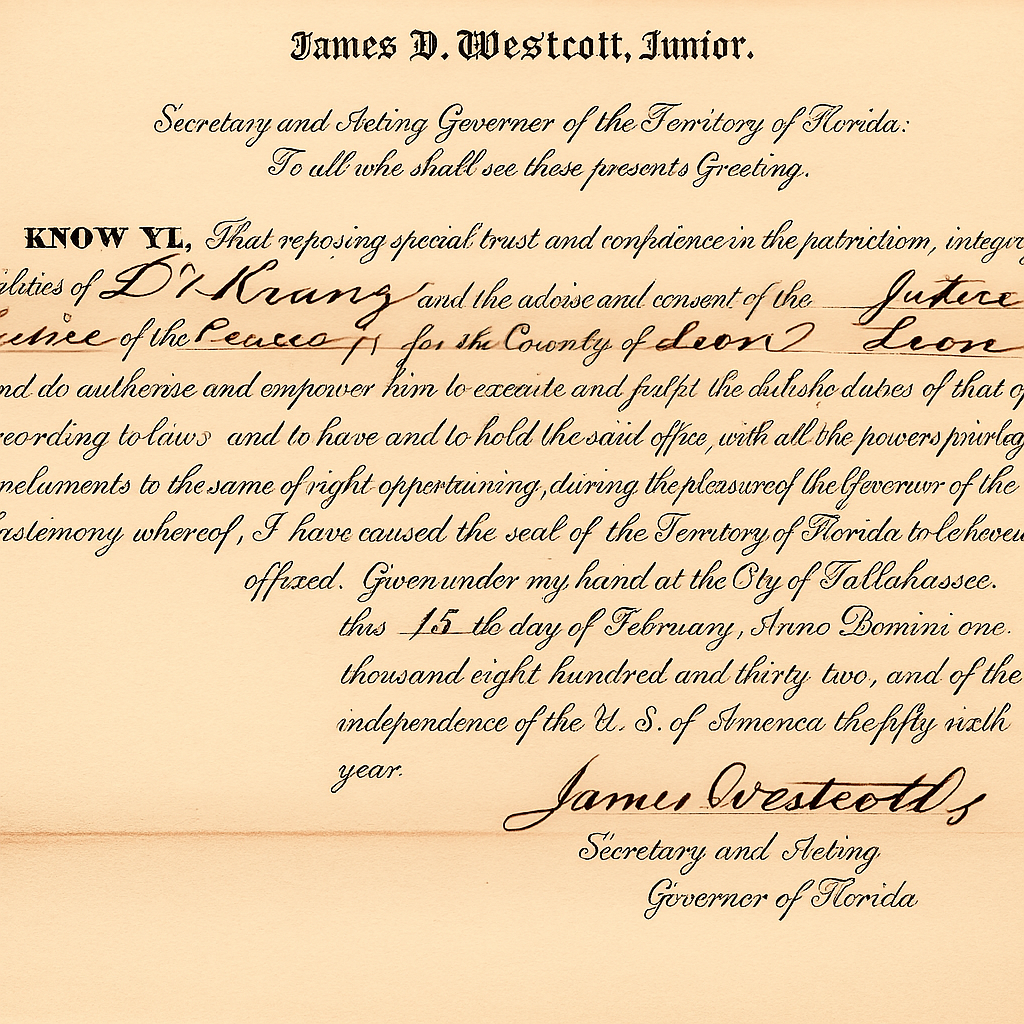 James D. Westcott, Junior.
Secretary and Acting Geverner of the Territory of Florida:
To all whe shall see these presents Greeting.
KNOW YL, That reposing special trust and confidence in the patrictiom, integry
ilities of D. Krang and the advise and consent of the Justice
of the Peace for the County of Leon Leon
nd do autherise and empower him to execute and the duties of that of
reording to laws and to have and to hold the said office, with all the powers privileg
neluments to the same of right oppertaining, during the pleasure of the Geverner of the
astemony whereof, I have caused the seal of the Territory of Florida to le heveu
offixed. Given under my hand at the City of Tallahassee.
this 15 th day of February, Anno Bomini one.
thousand eight hundred and thirty two, and of the
independence of the U. S. of Amenca the fifty sixth
year.
James Westcott
Secretary and Acting
Governor of Florida